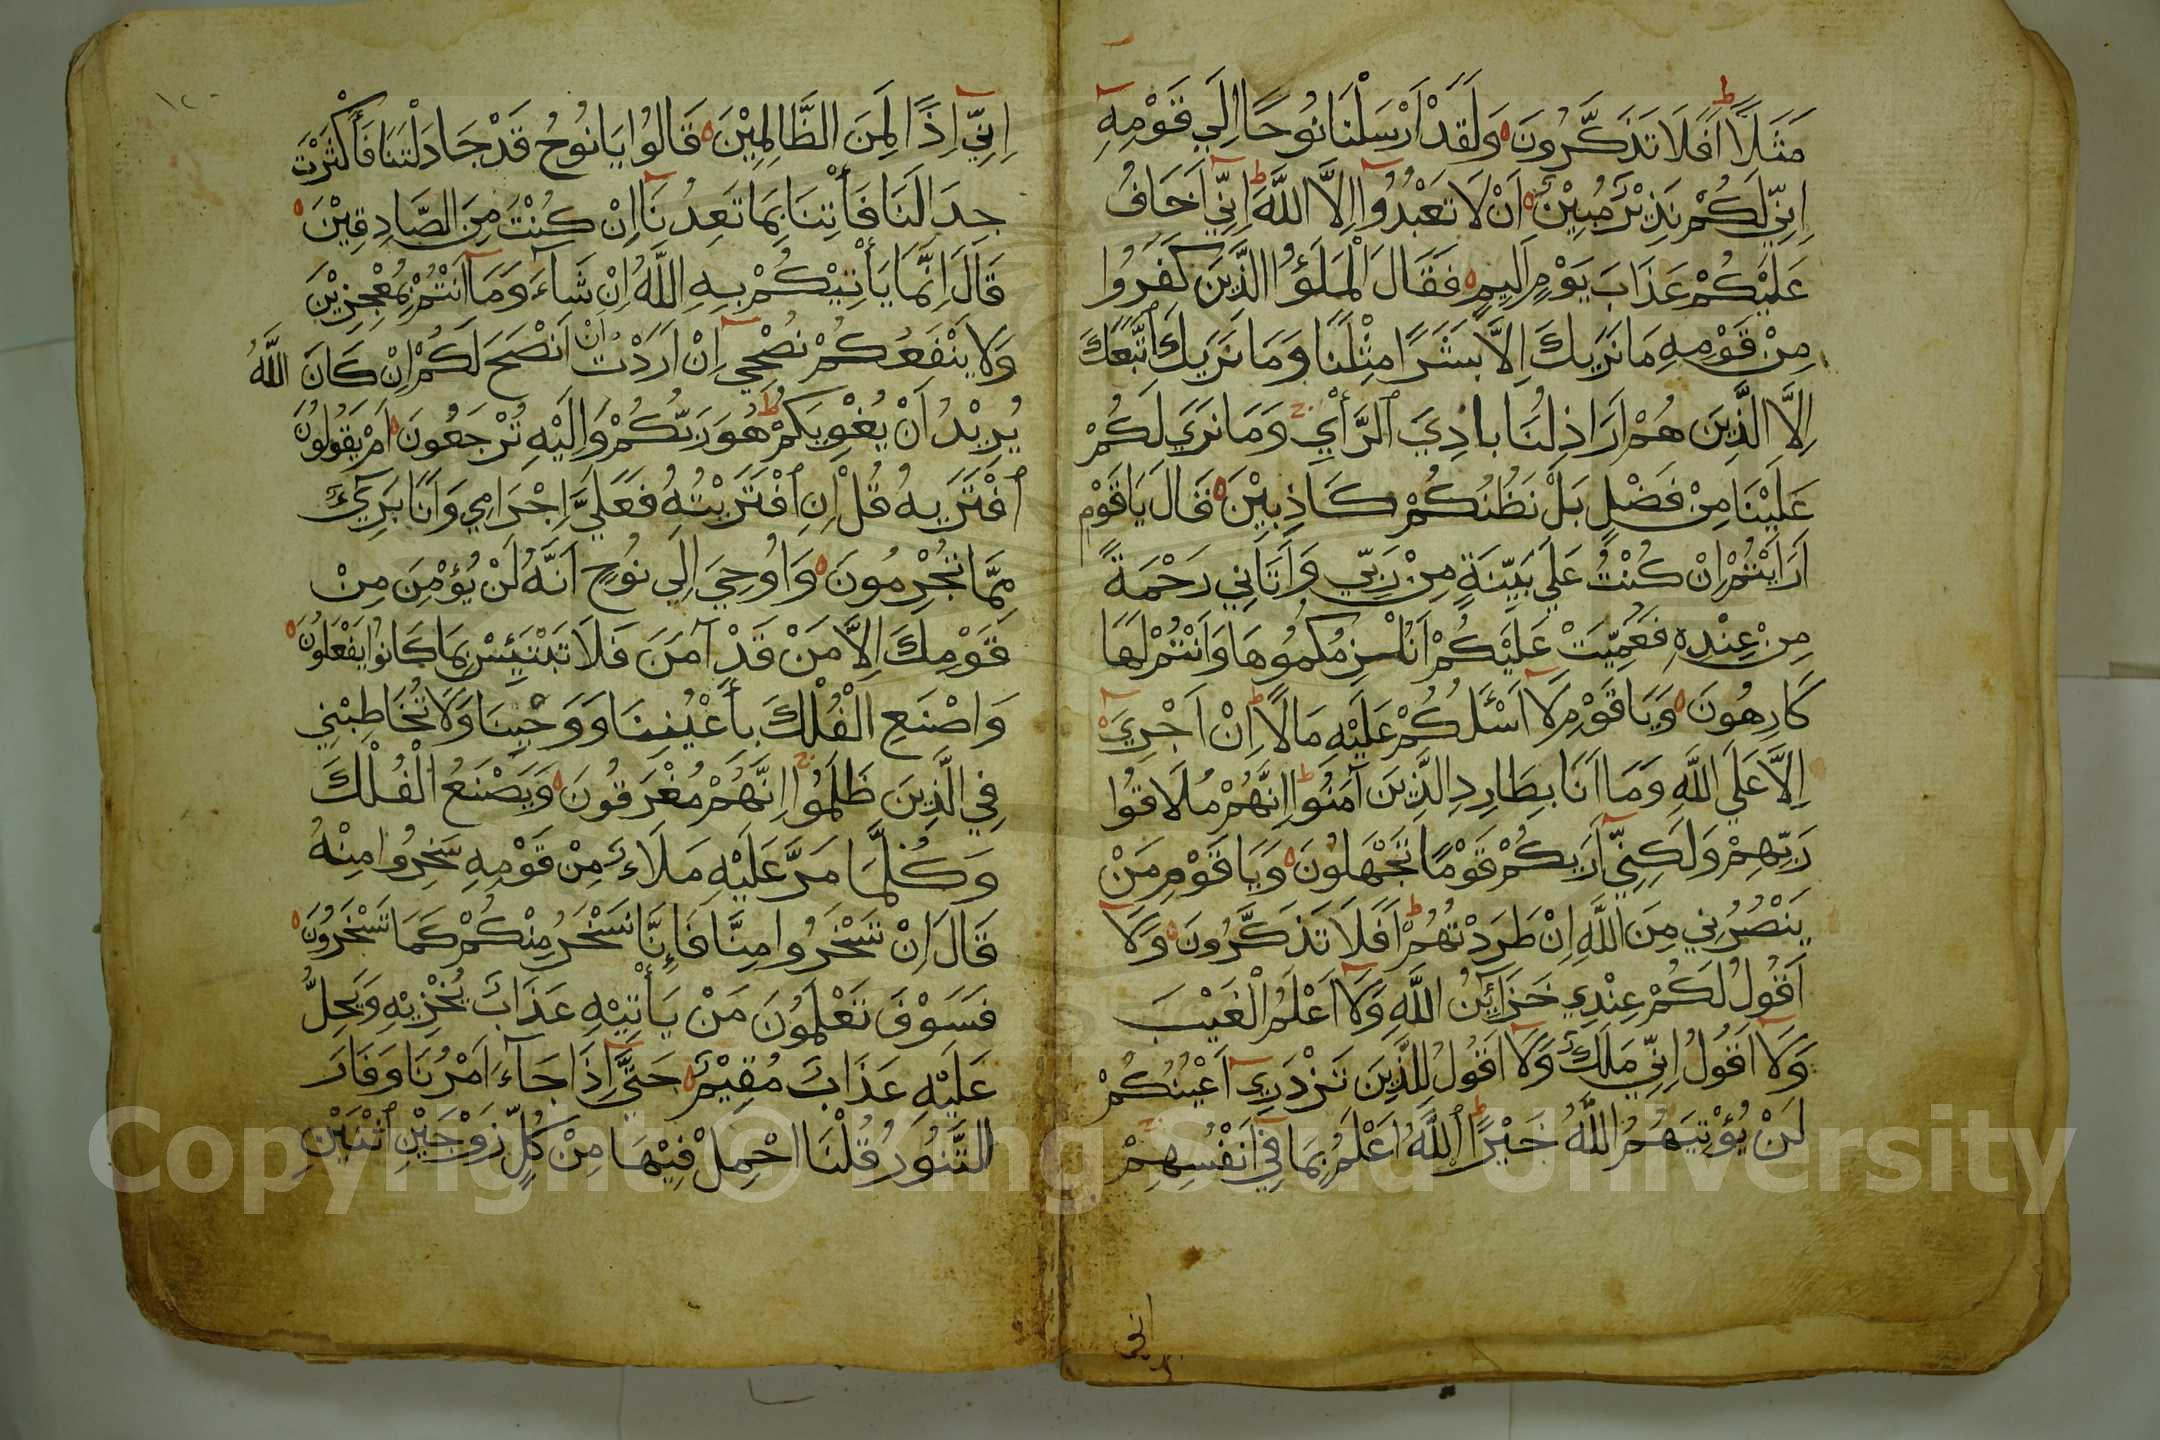 مَثَلًا اَفَلَا تَذَكَّرُونَ وَلَقَدْ اَرْسَلْنَا نُوحًا اِلَي قَوْمِهِ
اِنِّي لَكُمْ نَذِيْرٌ مُبِيْنٌ اَنْ لَا تَعْبُدُوا اِلَّا اللَّهَ اِنِّي اَخَافُ
عَلَيْكُمْ عَذَابَ يَوْمٍ اَلِيمٍ فَقَالَ الْمَلَؤُا الَّذِيَن كَفَرُوا
مِنْ قَوْمِهِ مَا نَرَيكَ اِلَّا بَشَرًا مِثْلَنَا وَمَا نَرَيكَ اتَّبَعَكَ
اِلَّا الَّذِيَن هُمْ اَرَاذِلُنَا بادِيَ الرَّأْيِ وَمَا نَرَي لَكُمْ
عَلَيْنَا مِنْ فَضْلٍ بَلْ نَظُنُكُمْ كَاذِبِيْنَ قَالَ يَا قَوْمِ
اَرَاَيْتُمْ اِنْ كُنْتُ عَلَي بَيِّنَةٍ مِنْ رَبِّي وَاَتَانِي رَحْمَةً
مِنْ عِنْدِهِ فَعُمِّيَتْ عَلَيْكُمْ اَنُلْزِمُكُمُوهَا وَاَنْتُمْ لَهَا
كَارِهُونَ وَيَا قَوْمِ لَا اَسْئَلُكُمْ عَلَيْهِ مَالًا اِنْ اَجْرِيَ
اِلَّا عَلَي اللَّهِ وَمَا اَنَا بِطَارِدِ الَّذِيَن آمَنُوا اِنَّهُمْ مُلَاقُوا
رَبِّهِمْ وَلَكِنِّي اَرَيكُمْ قَوْمًا تَجْهَلُونَ وَيَا قَوْمِ مَنْ
يَنْصُرُنِي مِنَ اللَّهِ اِنْ طَرَدْتُهُمْ اَفَلَا تَذَكَّرُونَ وَلَا
اَقُولُ لَكُمْ عِنْدِي خَزَآئِنُ اللَّهِ وَلَا اَعْلَمُ الْغَيْبَ
وَلَا اَقُولُ اِنِّي مَلَكٌ وَلَا اَقُولُ لِلَّذِيَن تَزْدَرِي اَعْيُنُكُمْ
لَنْ يُؤْتِيَهُمُ اللَّهُ خَيْرًا اللَّهُ اَعْلَمُ بِمَا فِي اَنْفُسِهِمْ
اني
اِنِّي اِذًا لَمِنَ الظَّالِمِيْنَ قَالُوا يَا نُوحُ قَدْ جَادَلْتَنَا فَأَكْثَرْتَ
جِدَالَنَا فَأْتِنَا بِمَا تَعِدُنَا اِنْ كُنْتَ مِنَ الصَّادِقِيْنَ
قَالَ اِنَّمَا يَأْتِيْكُمْ بِهِ اللَّهُ اِنْ شَآءَ وَمَا اَنْتُمْ بِمُعْجِزِيْنَ
وَلَا يَنْفَعُكُمْ نُصْحِي اِنْ اَرَدْتُ اَنْ اَنْصَحَ لَكُمْ اِنْ كَانَ اللَّهُ
يُرِيْدُ اَنْ يُغْوِيَكُمْ هُوَ رَبُّكُمْ وَاِلَيْهِ تُرْجَعُونَ اَمْ يَقُولُونَ
افْتَرَيهُ قُلْ اِنِ افْتَرَيْتُهُ فَعَلَيَّ اِجْرَامِي وَاَنَا بَرِيءٌ
مِمَّا تُجْرِمُونَ وَاُوحِيَ اِلَي نُوحٍ اَنَّهُ لَنْ يُؤْمِنَ مِنْ
قَوْمِكَ اِلَّا مَنْ قَدْ آمَنَ فَلَا تَبْتَئِسْ بِمَا كَانُوا يَفْعَلُونَ
وَاصْنَعِ الْفُلْكَ بِأَعْيُنِنَا وَوَحْيِنَا وَلَا تُخَاطِبْنِي
فِي الَّذِيَن ظَلَمُوا اِنَّهُمْ مُغْرَقُونَ وَيَصْنَعُ الْفُلْكَ
وَكُلَّمَا مَرَّ عَلَيْهِ مَلَاءٌ مِنْ قَوْمِهِ سَخِرُوا مِنْهُ
قَالَ اِنْ تَسْخَرُوا مِنَّا فَإِنَّا نَسْخَرُ مِنْكُمْ كَمَا تَسْخَرُونَ
فَسَوْفَ تَعْلَمُونَ مَنْ يَأْتِيْهِ عَذَابٌ يُخْزِيْهِ وَيَحِلُّ
عَلَيْهِ عَذَابٌ مُقِيْمٌ حَتَّي اِذَا جَآءَ اَمْرُنَا وَفَارَ
التَّنُّورُ قُلْنَا احْمِلْ فِيْهَا مِنْ كُلٍّ زَوْجَيْنِ اثْنَيْنِ
Copyright © King Saud University